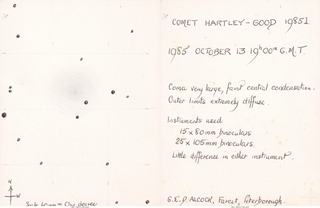 COMET HARTLEY-GOOD 1985l
1985 OCTOBER 13 19h00m G.M.T.
Coma very large, faint central condensation.
Outer limits extremely diffuse.
Instruments used
15 x 80mm binoculars
25 x 105mm binoculars.
Little difference in either instrument.
G.E.D ALCOCK, Farcet, Peterborough.
N
W
= One degree